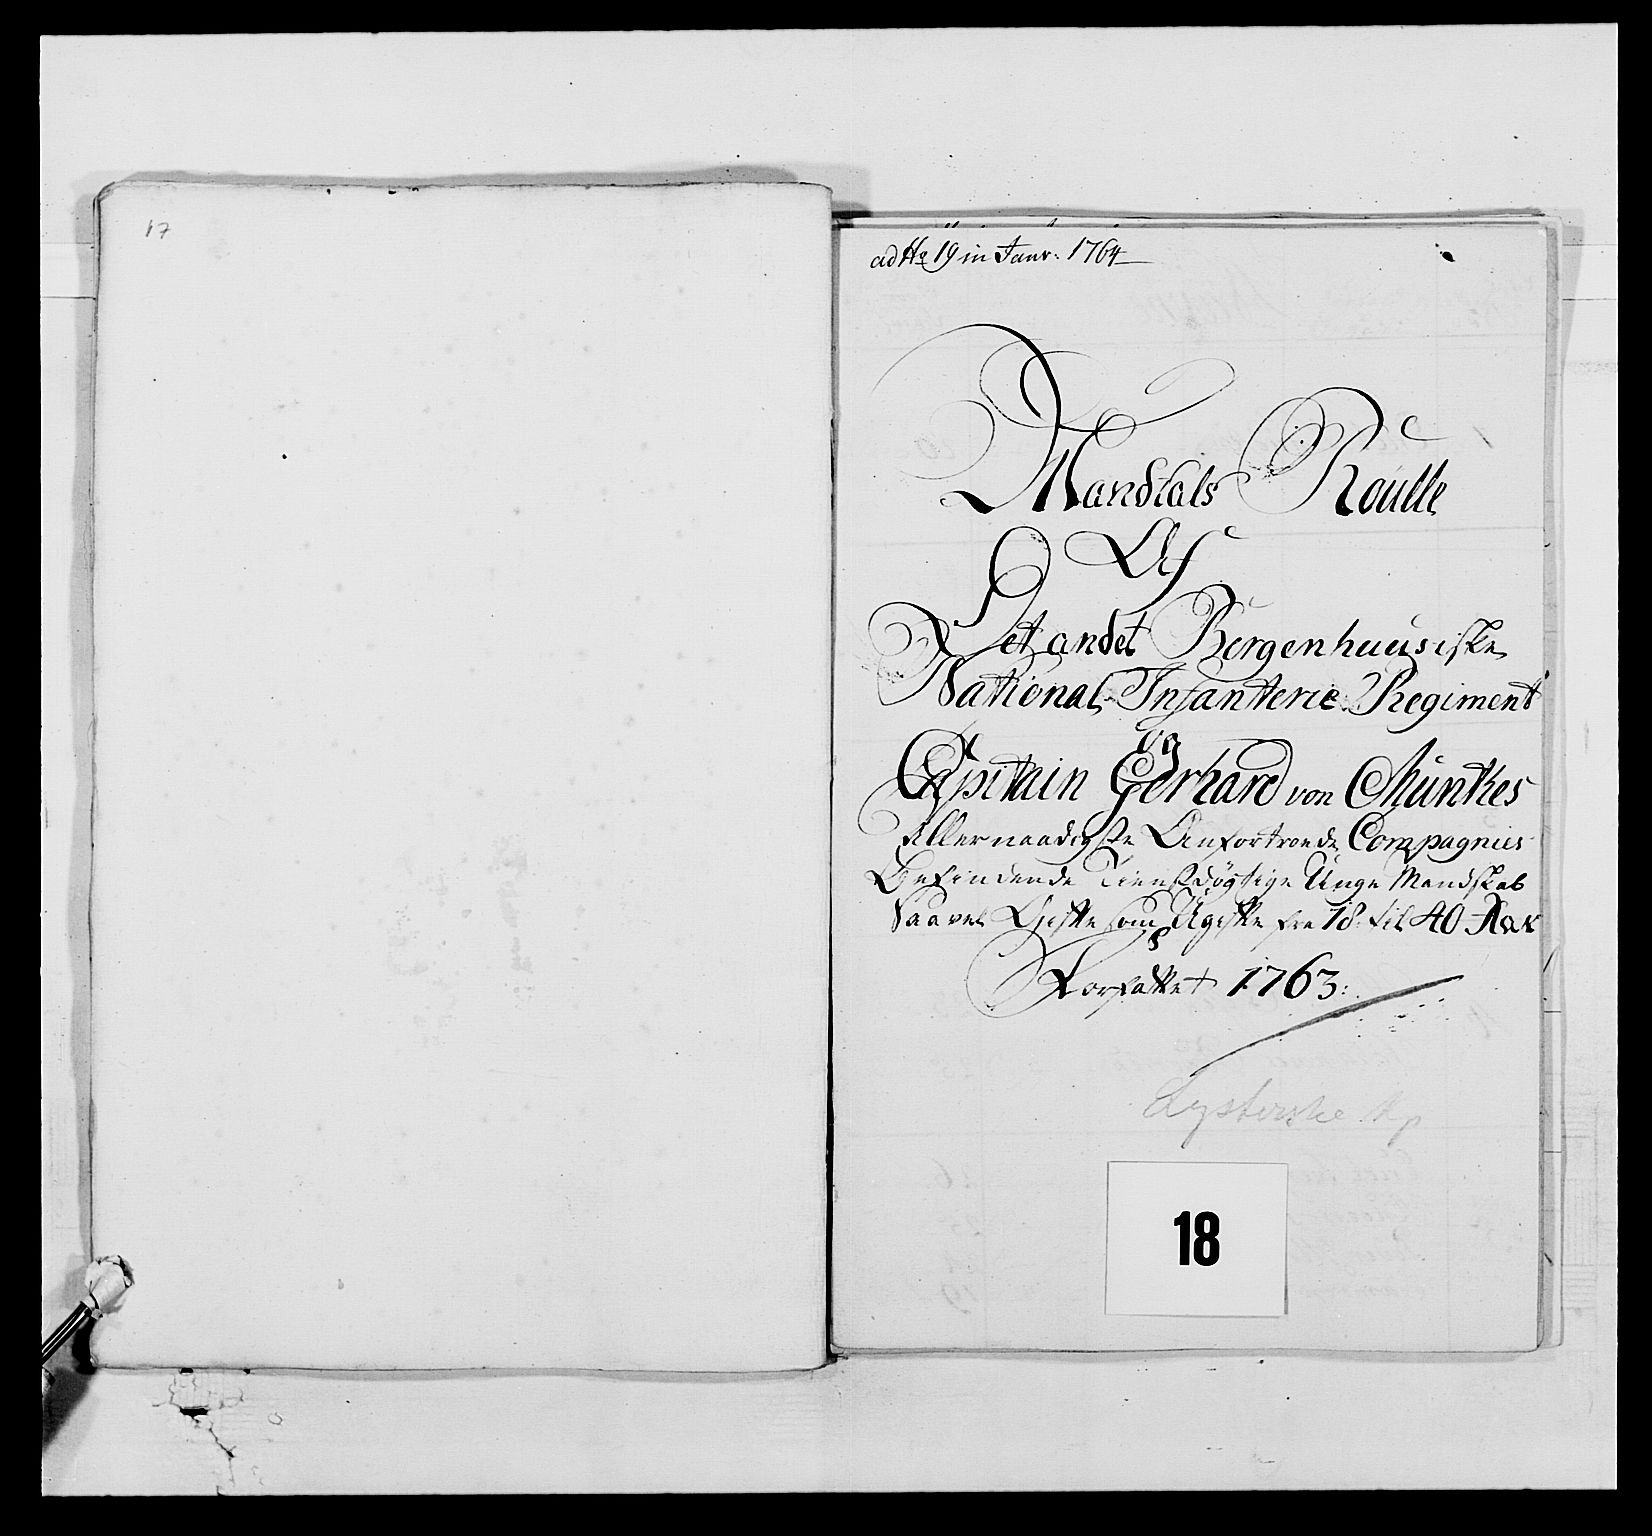 17
ad No 19 in Janv: 1764
Mandtals Roulle
Af
Det andet Bergenhuusiske
National Infanterie Regiment
Og
Capitain Gerhard von Müntkes
Allernaadigste Anfortroede Compagnies
Befindende Tienstdögtige Unge Mandskab
Saavel Gifte som Ugifte fra 18 til 40 Aar
Forfattet 1763:
Lysterske Kp
18